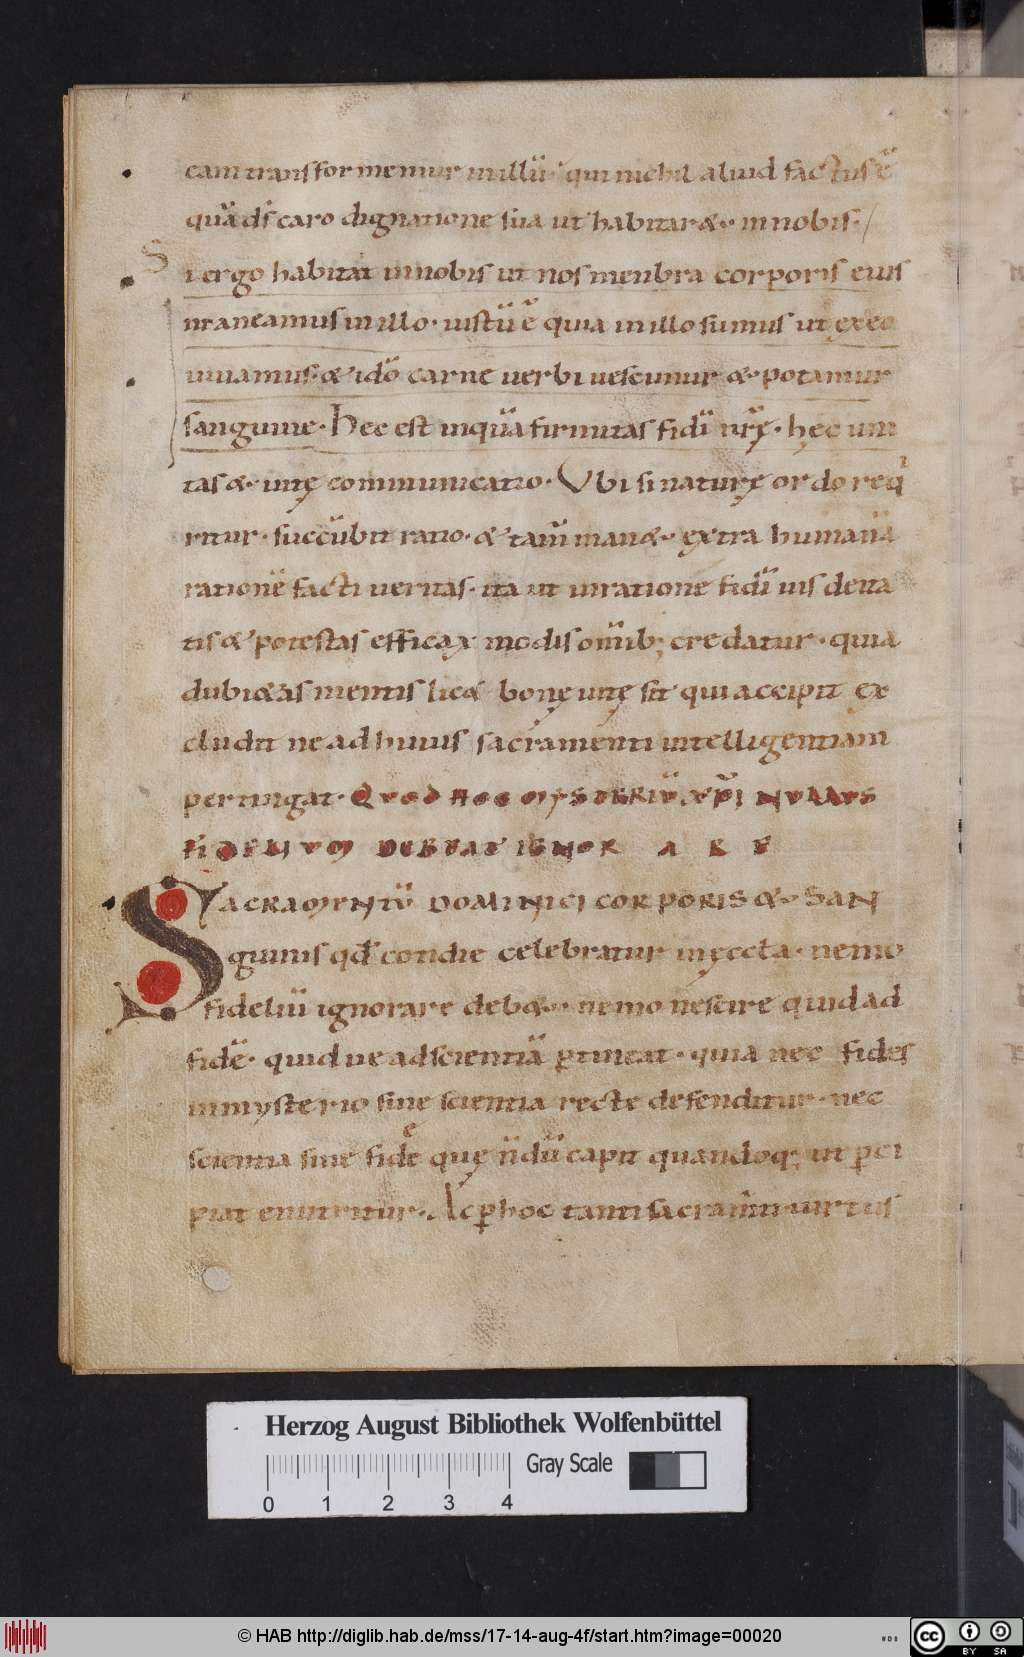 cam transformemur in illū qui nichil aliud factus ē
quā dſ caro dignatione sua ut habitaret in nobis.
Si ergo habitat in nobis ut nos menbra corporis eius
maneamus in illo. iustū ē quia in illo sumus ut ex eo
uiuamus. & ideo carne uerbi uescimur &. potamur
sanguine. Hec est inquā firmitas fidei nrę. hęc uni
tas &. uitę communicatio. Ubi si naturę ordo reqi
ritur. succūbit ratio. & tam̄ man&. extra humanā
rationē facti ueritas. ita ut in ratione fidei uis deua
tis & potestas efficax modis omib; credatur. quia
dubi&as mentis lic& bonę uitę sit qui accipit ex
cludit ne ad huius sacramenti intelligentiam
pertingat. QUOD HOC MYSTERIŪ XPI NULLUS
FIDELIUM DEBEAT IGNORARE
SACRAMENTŪ DOMINICI CORPORIS &. SAN
guinis qd cotidie celebratur in ęccła. nemo
fideliū ignorare deb&. nemo nescire quid ad
fidē. quid ue ad scientiā ptineat. quia nec fides
in mysterio sine scientia recte defenditur. nec
scientia sine fide quę n̄dū capit quandoq; ut pci
piat enutritur. Ac p hoc tanti sacram̄ti uirtus
Herzog August Bibliothek Wolfenbüttel
Gray Scale
0 1 2 3 4
© HAB http://diglib.hab.de/mss/17-14-aug-4f/start.htm?image=00020
WDB
cc BY SA